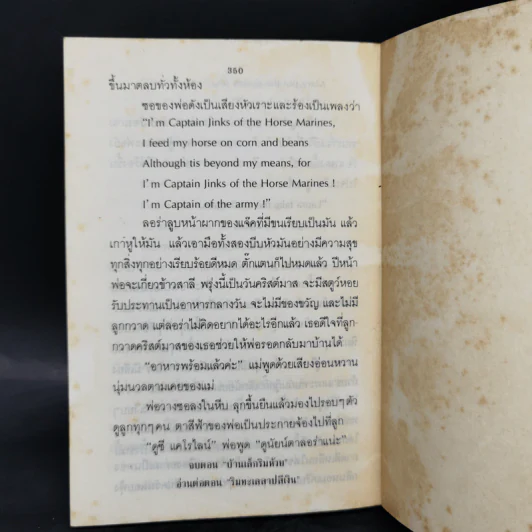 ๓๕๐
ขึ้นมาตลบทั่วทั้งห้อง
ซอของพ่อดังเป็นเสียงหัวเราะและร้องเป็นเพลงว่า
"I'm Captain Jinks of the Horse Marines,
I feed my horse on corn and beans
Although tis beyond my means, for
I'm Captain Jinks of the Horse Marines !
I'm Captain of the army !"
ลอร่าลูบหน้าผากของแจ๊คที่มีขนเรียบเป็นมัน แล้ว
เกาหูให้มัน แล้วเอามือทั้งสองบีบหัวมันอย่างมีความสุข
ทุกสิ่งทุกอย่างเรียบร้อยดีหมด ตั๊กแตนก็ไปหมดแล้ว ปีหน้า
พ่อจะเกี่ยวข้าวสาลี พรุ่งนี้เป็นวันคริสต์มาส จะมีสตูว์หอย
รับประทานเป็นอาหารกลางวัน จะไม่มีของขวัญ และไม่มี
ลูกกวาด แต่ลอร่าไม่คิดอยากได้อะไรอีกแล้ว เธอดีใจที่ลูก
กวาดคริสต์มาสของเธอช่วยให้พ่อรอดกลับมาบ้านได้
"อาหารพร้อมแล้วค่ะ" แม่พูดด้วยเสียงอ่อนหวาน
นุ่มนวลตามเคยของแม่
พ่อวางซอลงในหีบ ลุกขึ้นยืนแล้วมองไปรอบๆ ตัว
ดูลูกทุกๆ คน ตาสีฟ้าของพ่อเป็นประกายจ้องไปที่ลูก
"ดูซี แคโรไลน์" พ่อพูด "ดูนัยน์ตาลอร่าแน่ะ"
จบตอน "บ้านเล็กริมห้วย"
อ่านต่อตอน "ริมทะเลสาปสีเงิน"